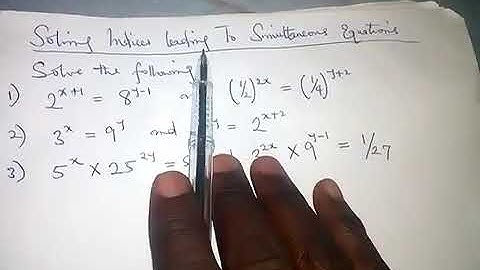 Solving Indices Leading To Simultaneous Equations
Solve the following
1) 2^{x+1} = 8^{y-1} a (½)^{2x} = (¼)^{y+2}
2) 3^x = 9^y and ^y = 2^{x+2}
3) 5^x × 25^{2y} = 2^{2x} × 9^{y-1} = 1/27